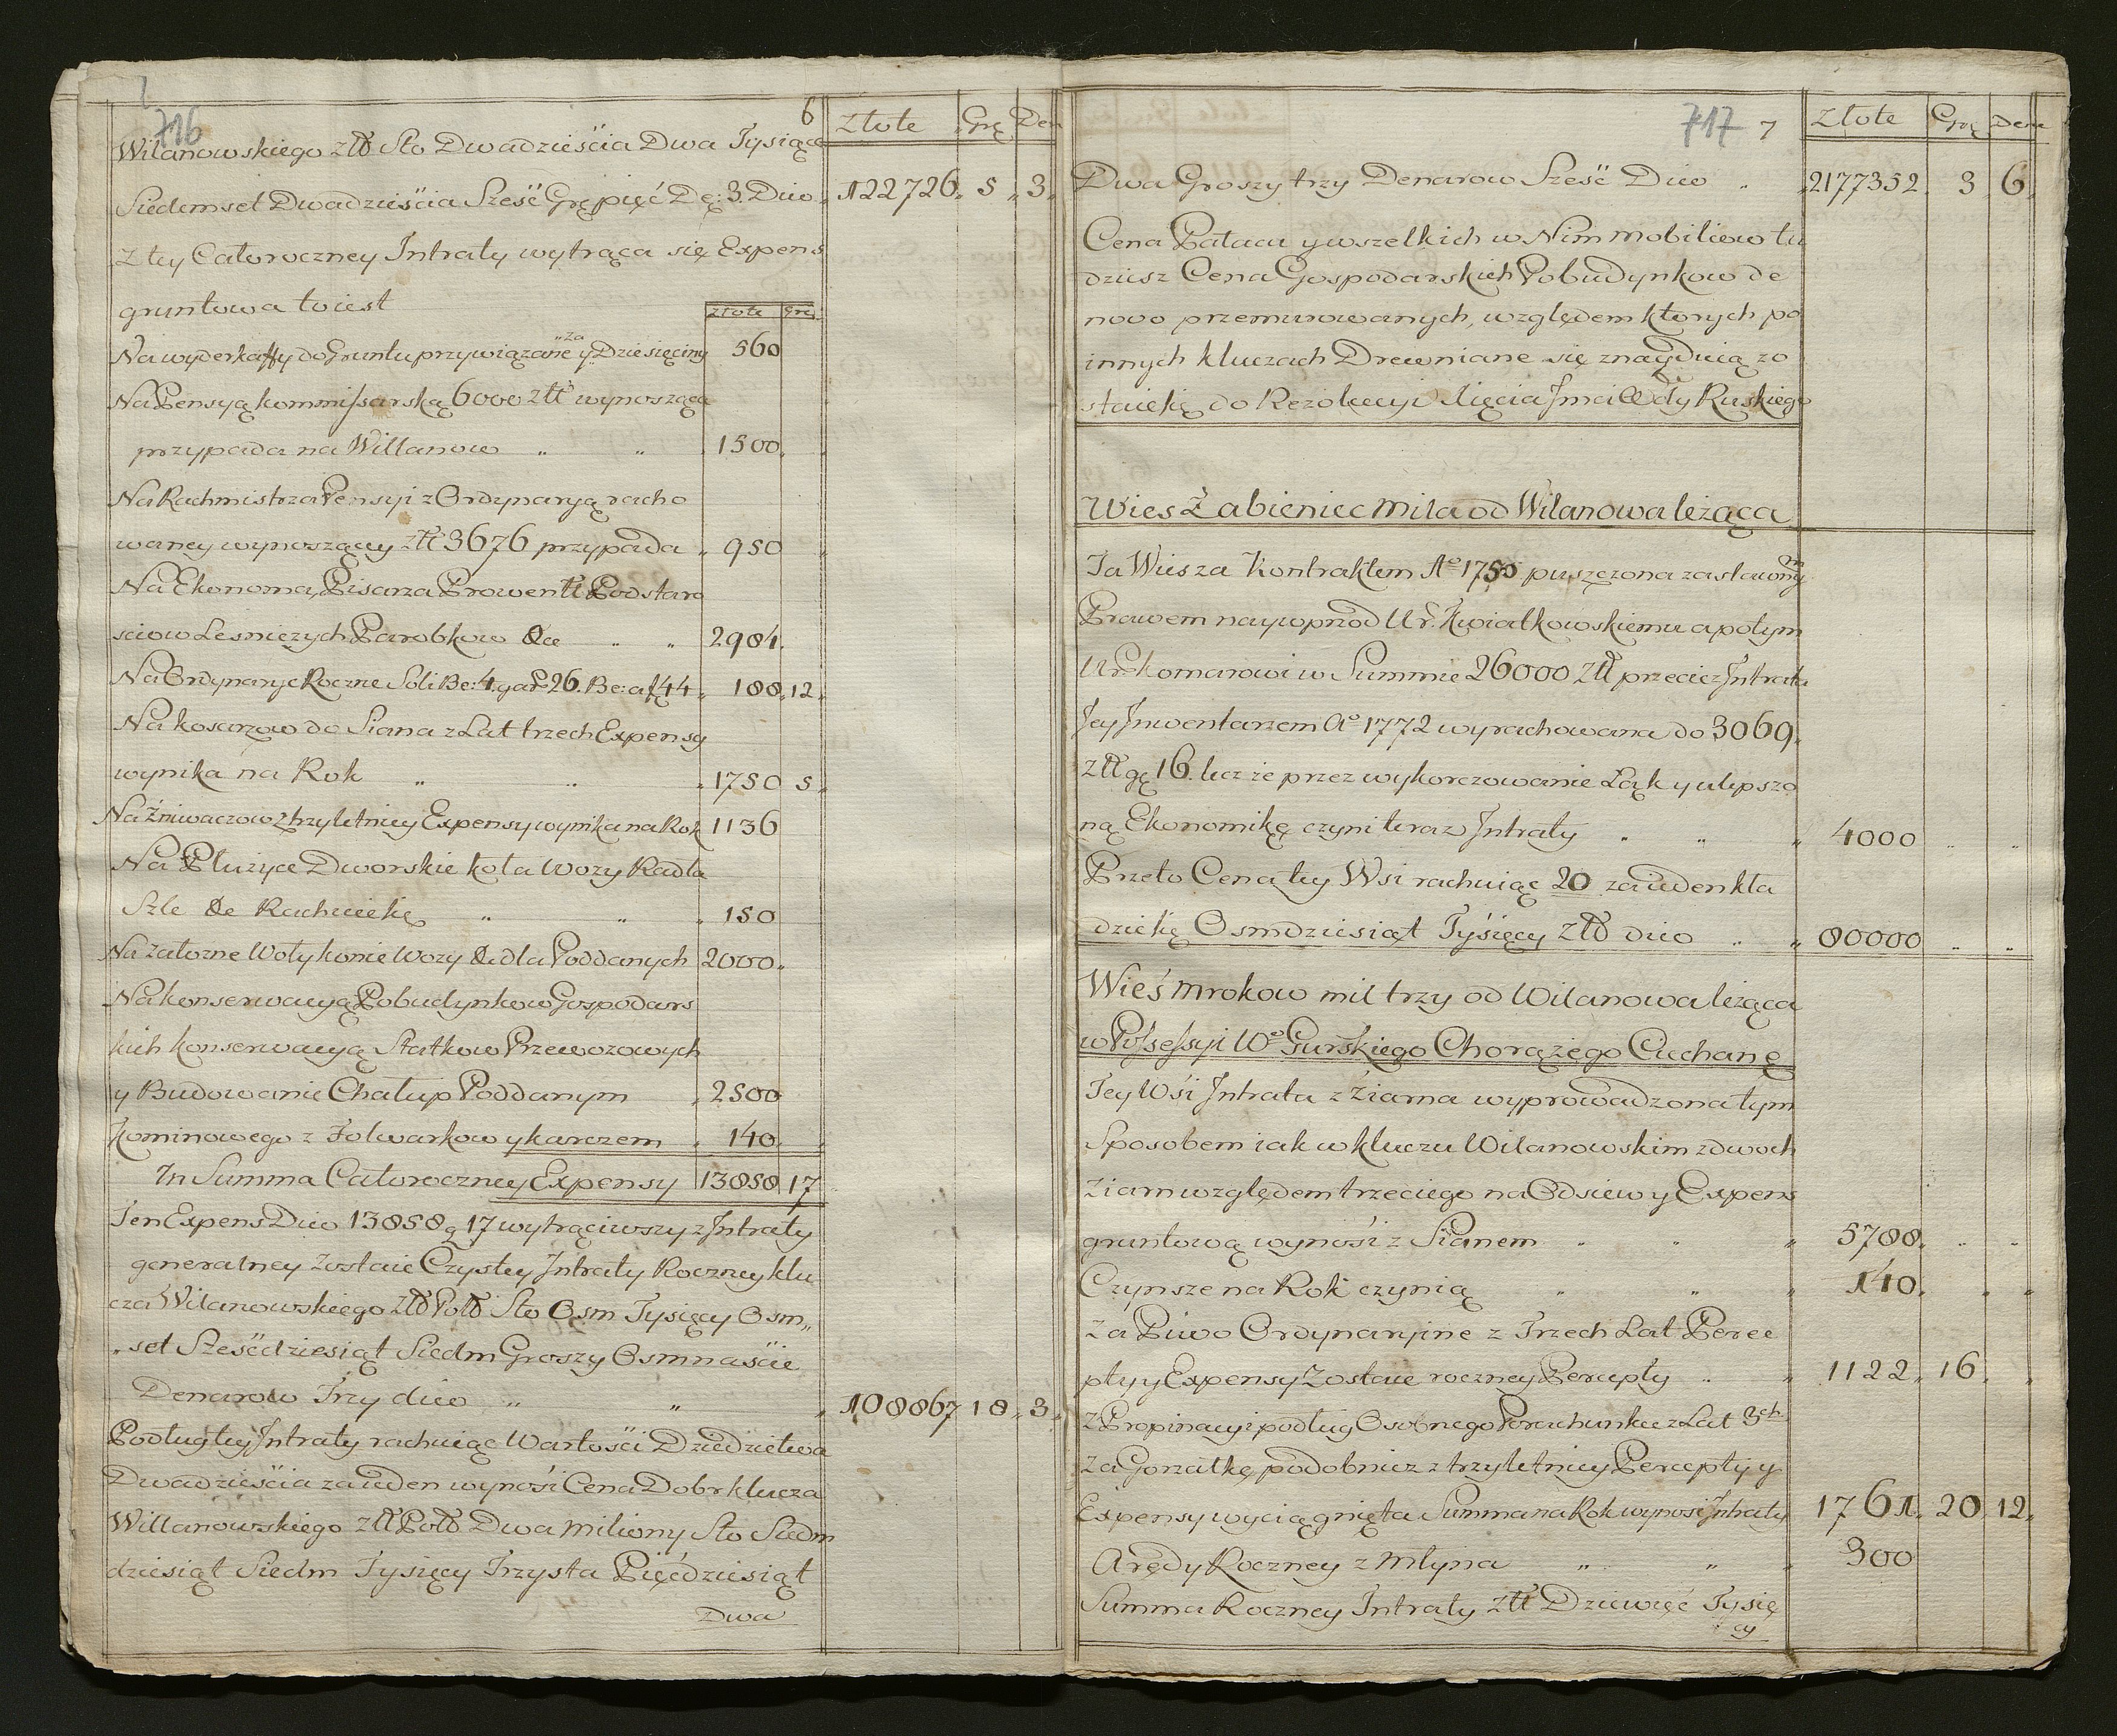 716
6
Złote Grę Den
Wilanowskiego złł Sto Dwadzieścia Dwa Tysiące
Siedemset Dwadzieścia Sześć Grę pięć De: 3. Dico 122726. 5 3.
Z tey Całoroczney Intraty wytrąca się Expens
gruntowa to iest
Złote Gro.
Na wyderkaffy do Gruntu przywiązane y za Dziesięciny 560
Na Pensyą kommissarską 6000 złł wynoszącą
przypada na Willanow 1500.
Na Rachmistrza Pensyi z Ordynaryą racho
waney wynoszącey złł 3676 przypada 950
Na Ekonoma, Pisarza Prowent: Podstaro
ściow Lesniczych Parobkow &c 2984.
Na Ordynarye Roczne Soli Be: 4. y gar 26. Be: a f 44 188. 12.
Na kosarzow do Siana z Lat trzech Expensy
wynika na Rok 1750 5.
Na Żniwaczow z trzyletniey Expensy wynika na Rok 1136
Na Płużyce Dworskie koła Wozy Radła
Szle &c Rachuiekę 150
Na załozne Woły konie Wozy &c dla Poddanych 2000.
Na konserwacyą Pobudynkow Gospodars
kich konserwacyą Statkow Przewozowych
y Budowanie Chałup Poddanym 2500
Kominowego z Folwarkow y karczem 140.
In Summa Całoroczney Expensy 13858 17
Ten Expens Dico 13858 g 17 wytrąciwszy z Intraty
generalney zostaie Czystey Intraty Roczney klu
cza Wilanowskiego złł Poll Sto Osm Tysięcy Osm„
„set Sześćdziesiąt Siedm Groszy Osmnaście
Denarow Trzy dico 108867 18. 3.
Podług tey Intraty rachuiąc Wartości Dziedzictwa
Dwadzieścia za ieden wynosi Cena Dobr klucza
Willanowskiego złł Poll Dwa miliony Sto Siedm
dziesiąt Siedm Tysięcy Trzysta Pięćdziesiąt
Dwa
717 7
Złote Gro Dena
Dwa Groszy trzy Denarow Sześć Dico 2177352. 3 6.
Cena Pałacu y wszelkich w Nim mobiliow tu
dziesz Cena Gospodarskich Pobudynkow de
novo przemurowanych, względem ktorych po
innych kluczach Drewniane się znayduią zo
staiekę do Rezolucyi Xięcia Jmci Wdy Ruskiego
Wies Żabieniec mila od Wilanowa leżąca
Ta Wies za Kontraktem Ao 1750 puszczona zastawnym
Prawem naywprzod Ur. Kwiatkowskiemu a potym
Ur. Komarowi w Summie 26000 złł przecież Intrata
Jey Inwentarzem Ao 1772 wyrachowana do 3069.
złł gę 16. lecz że przez wykorczowanie Łąk y ulepszo
ną Ekonomikę czyni teraz Intraty 4000
Przeto Cena tey Wsi rachuiąc 20 za ieden kła
dziekę Osmdziesiąt Tysięcy złł dico 80000
Wieś Mrokow mil trzy od Wilanowa leżąca
w Possessyi Wo Gurskiego Chorążego Ciechanę
Tey Wśi Intrata z Ziarna wyprowadzona tym
Sposobem iak w kluczu Wilanowskim z dwoch
Ziarn względem trzeciego na Odsiew y Expens
gruntową wynośi z Sianem 5788.
Czynsze na Rok czynią 140.
Za Piwo Ordynaryine z Trzech Lat Perce
pty y Expensy Zostaie roczney Percepty 1122. 16.
z Propinacyi podług Osobnego Porachunku z Lat 3ch
Za Gorzałkę podobniez z trzyletniey Percepty y
Expensy wyciągnięta Summa na Rok wynosi Intraty 1761. 20 12.
Arędy Roczney z Młyna 300
Summa Roczney Intraty złł Dziewięć Tysię
cy